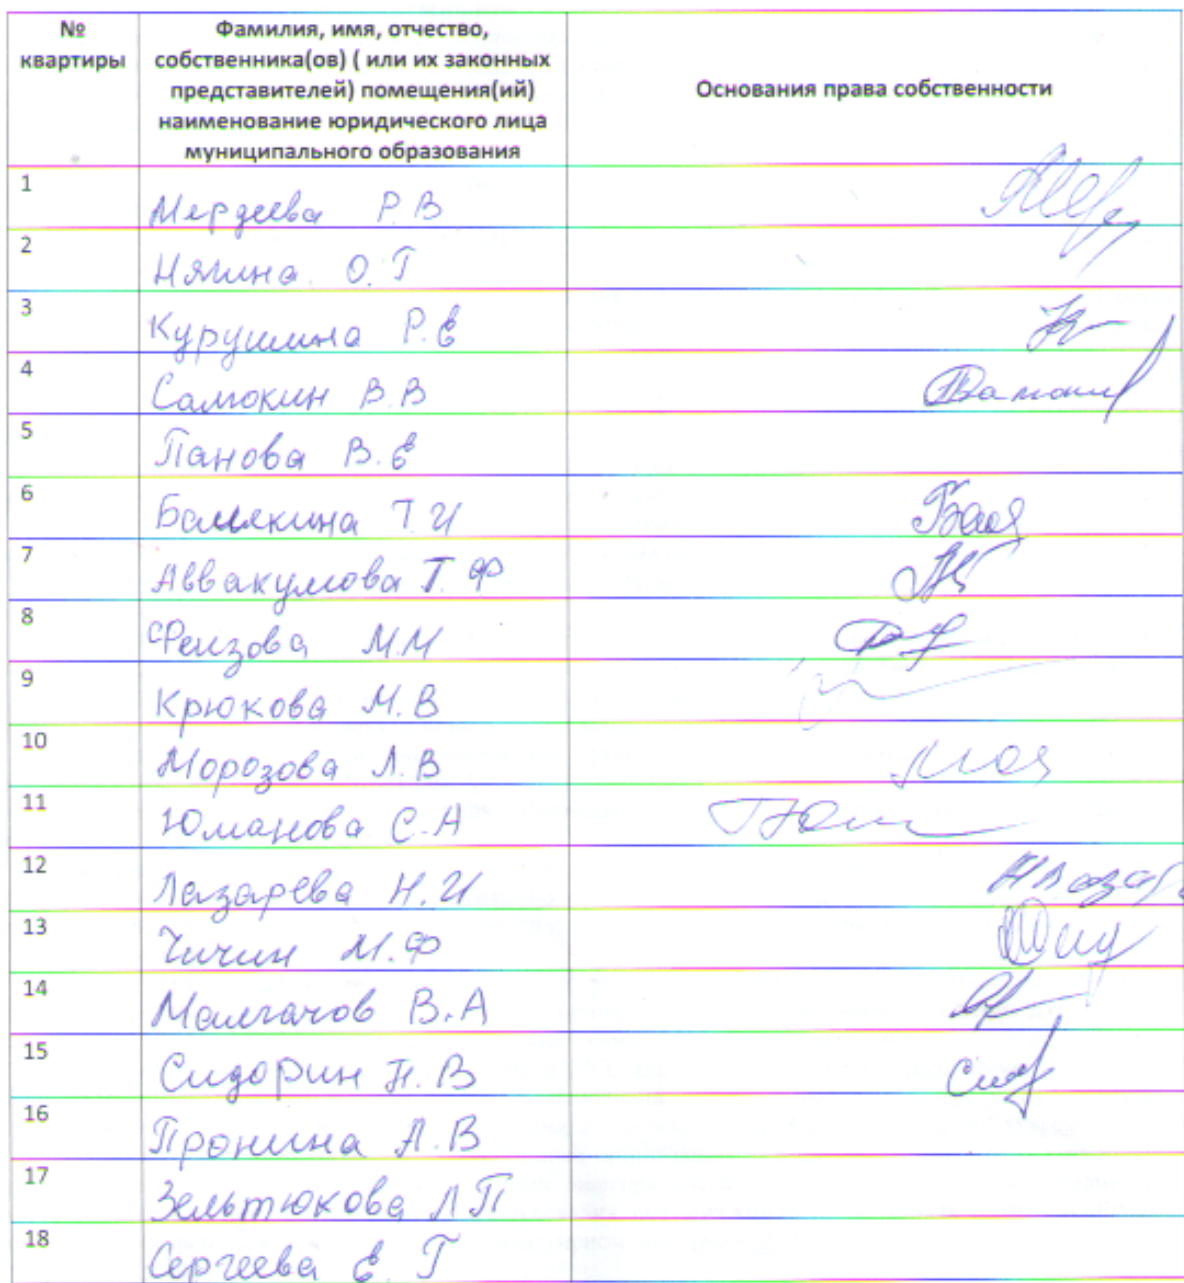 № квартиры
Фамилия, имя, отчество,
собственника(ов) ( или их законных
представителей) помещения(ий)
наименование юридического лица
муниципального образования
Основания права собственности
1 Мердеева Р В
2 Нягина О. Г
3 Курушина Р. Е
4 Самокин В. В
5 Панова В. Е
6 Балякина Т И
7 Аввакумова Т. Ф
8 Феизова М.М
9 Крюкова М. В
10 Морозова Л. В
11 Юманова С. А
12 Лазарева Н. И
13 Чичин М. Ф
14 Малгачов В. А
15 Сидорин Н. В
16 Пронина А. В
17 Зельтюкова Л П
18 Сергеева Е. Г